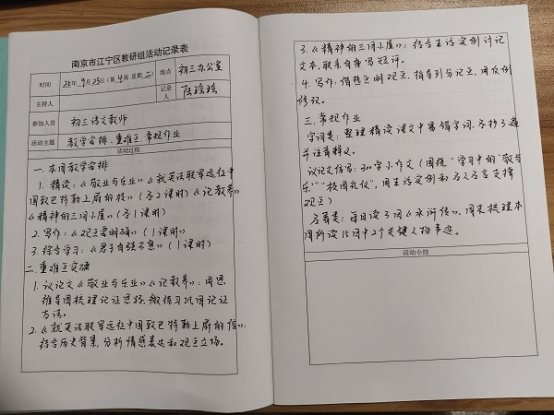 南京市江宁区教研组活动记录表
时间 25年9月23日(第4周 星期二) 地点 初三办公室
主持人 记录人
参加人员 初三语文教师
活动主题 教学安排、重难点、常规作业
活动过程:
一、本周教学安排
1. 精读:《敬业与乐业》《就英法联军远征中
国致巴特勒上尉的信》(各2课时)《论教养》
《精神的三间小屋》(各1课时)
2. 写作:《观点要明确》(1课时)
3. 综合学习:《君子自强不息》(1课时)
二、重难点突破
1. 议论文《敬业与乐业》《论教养》:用思
维导图梳理论证思路,做练习巩固论证
方法。
2. 《就英法联军远征中国致巴特勒上尉的信》:
结合历史背景,分析情感表达和观点立场。
3. 《精神的三间小屋》:结合生活实例讨论
文本,联系自身写短评。
4. 写作:借热点明观点,指导列分论点,用反例
修改。
三、常规作业
字词类:整理精读课文中易错字词,各抄3遍
并注音释义。
议论文仿写:300字小作文(围绕"学习中的'敬业乐
业'""校园教养",用生活实例和名人名言支撑
观点)
名著类:每日读3回《水浒传》,周末梳理本
周所读15回中2个关键人物事迹。
活动小结